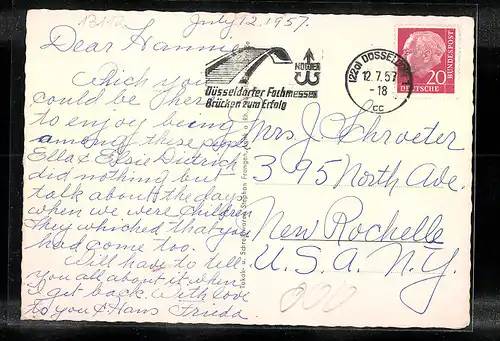 13112
July 12. 1957.
Dear Hannie
Which you
could be there
to enjoy being
among these people
Ella & Elsie Dietrich
did nothing but
talk about the days
when we were children
they whiched that you
had come too.
Will have to tell
you all about it when
I get back. With love
to you & Hans Frieda.
NOWEA
Düsseldorfer Fachmessen
Brücken zum Erfolg
(22a) DÜSSELDORF
12.7.57
-18
cc
20
DEUTSCHE
BUNDESPOST
Mrs J. Schroeter
395 North Ave.
New Rochelle
U.S.A. N.Y.
Stephan
000